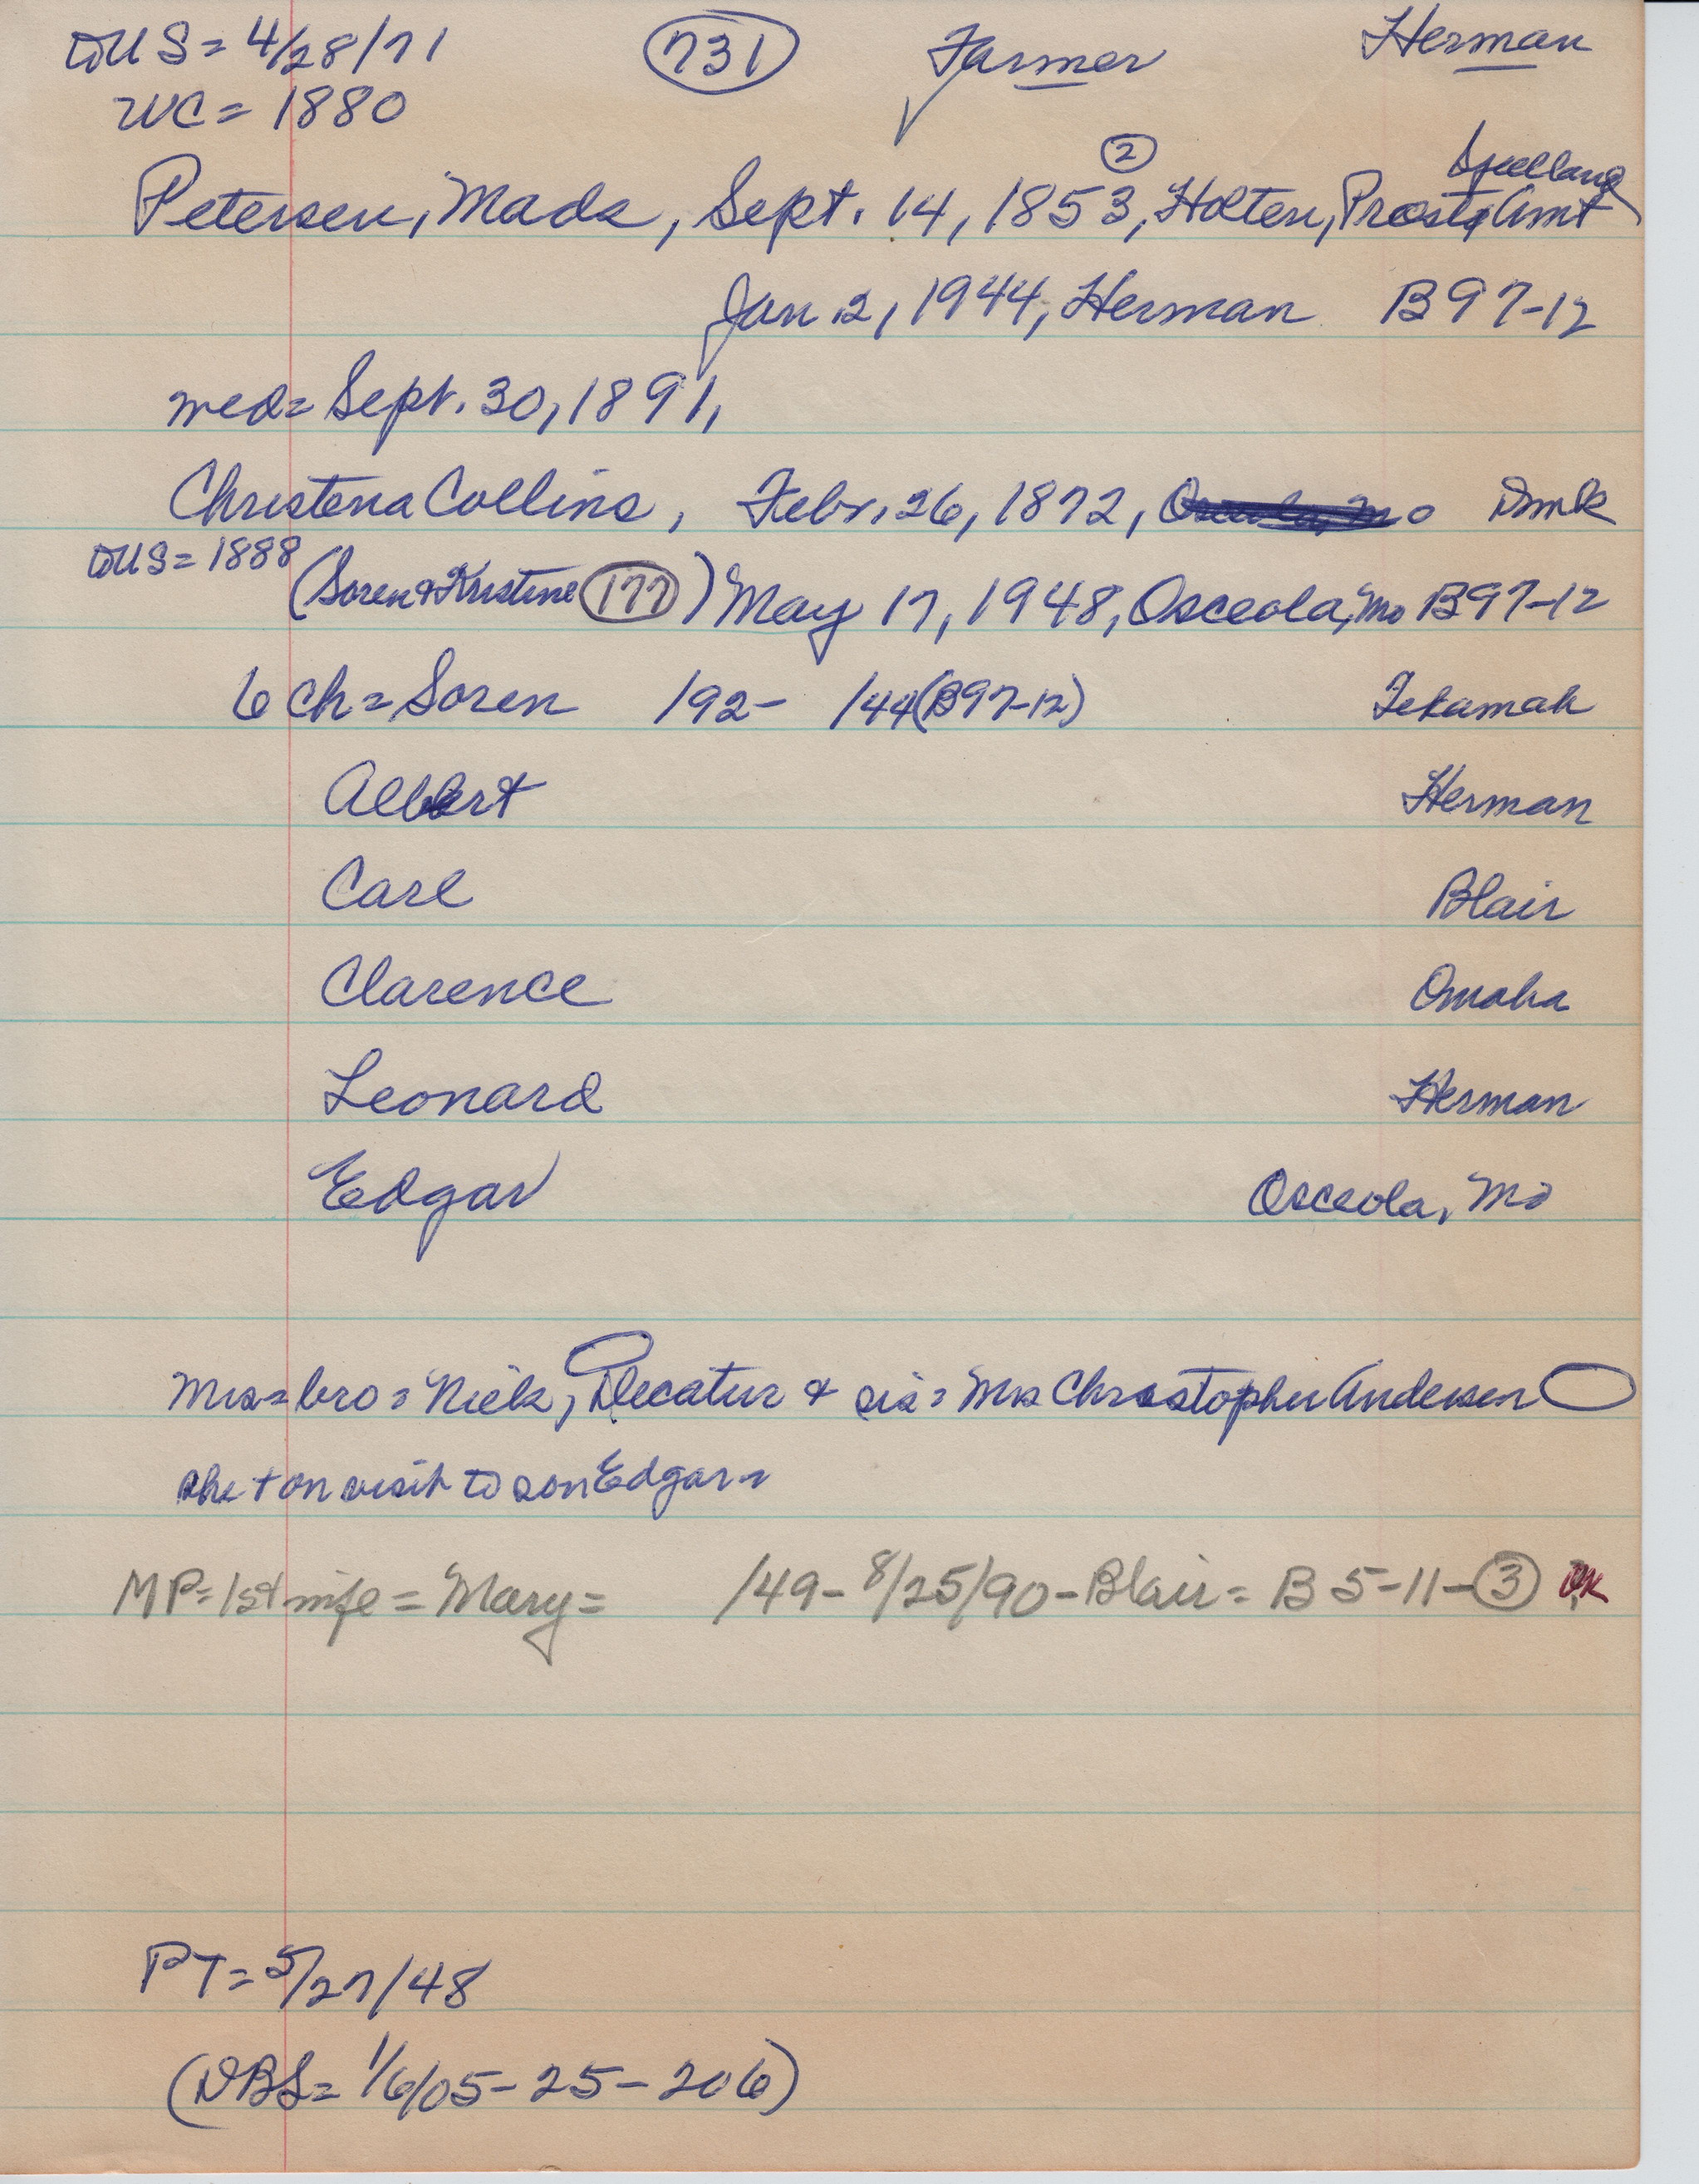 TUS = 4/28/71 (731) Farmer Herman
WC = 1880
(2) Sjælland
Petersen, Mads, Sept. 14, 1853, Holten, Prosto Amt
Jan 2, 1944, Herman B97-12
med = Sept. 30, 1891,
Christena Collins, Febr. 26, 1872, Dmk
TUS = 1888 (Soren & Kristine (177)) May 17, 1948, Osceola, Mo B97-12
6 ch = Soren 192- 144 (B97-12) Tekamah
Albert Herman
Carl Blair
Clarence Omaha
Leonard Herman
Edgar Osceola, Mo
Mrs = bro = Niels, Decatur & sis = Mrs Christopher Andersen
she + on visit to son Edgar =
MP = 1st wife = Mary = /49 - 8/25/90 - Blair = B 5-11-(3) OK
PT = 5/27/48
(DBS = 1/6/05 - 25 - 206)